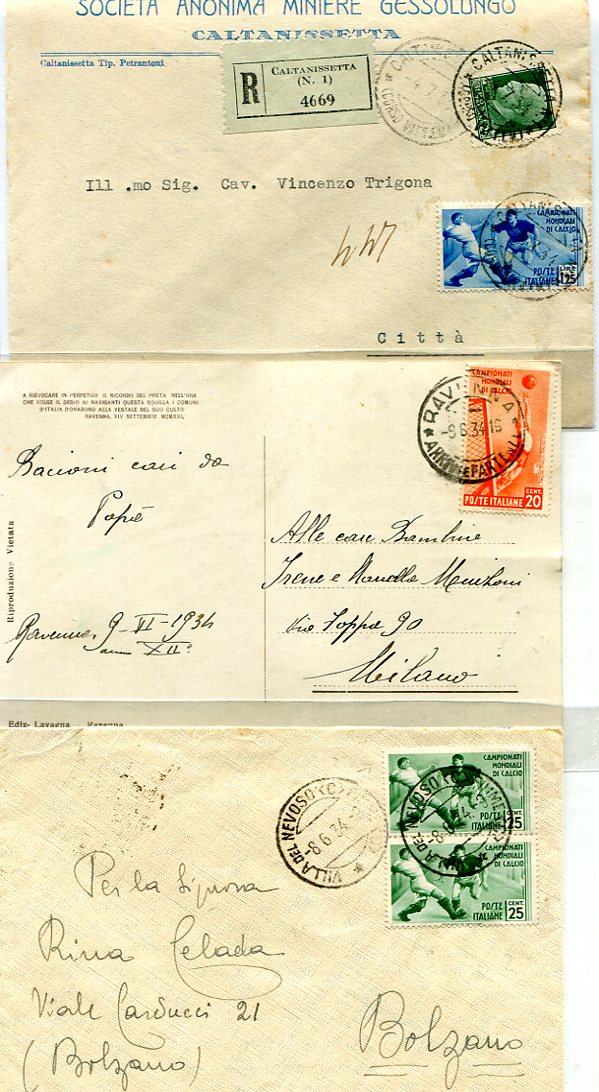 SOCIETA ANONIMA MINIERE GESSOLUNGO
CALTANISSETTA
Caltanissetta Tip. Petrantoni
R
CALTANISSETTA
(N. 1)
4669
CALTANISSETTA
Ill .mo Sig. Cav. Vincenzo Trigona
CAMPIONATI
MONDIALI
DI CALCIO
POSTE
ITALIANE
LIRE
1,25
Città
A RIEVOCARE IN PERPETUO IL RICORDO DEL POETA NELL'ORA
CHE VOLGE IL DESIO AI NAVIGANTI QUESTA SQUILLA I COMUNI
D'ITALIA DONARONO ALLA VESTALE DEL SUO CULTO
RAVENNA, XIV SETTEMBRE MCMXXI.
CAMPIONATI
MONDIALI
DI CALCIO
POSTE ITALIANE
CENT.
20
RAVENNA
-9.6.34 16
ARRIVI E PARTENZE
Bacioni cari da
Papà
Riproduzione Vietata
Ravenna, 9-VI-1934
anno XII°
Alle care Bambine
Irene e
Via Foppa 90
Milano
Ediz. Lavagna - Ravenna
VILLA DEL NEVOSO
-8.6.34
CAMPIONATI
MONDIALI
DI CALCIO
POSTE
ITALIANE
25
VILLA DEL NEVOSO (FIUME)
-8.6.34
CAMPIONATI
MONDIALI
DI CALCIO
POSTE
ITALIANE
CENT.
25
Per la Signora
Rina Celada
Viale Carducci 21
(Bolzano)
Bolzano